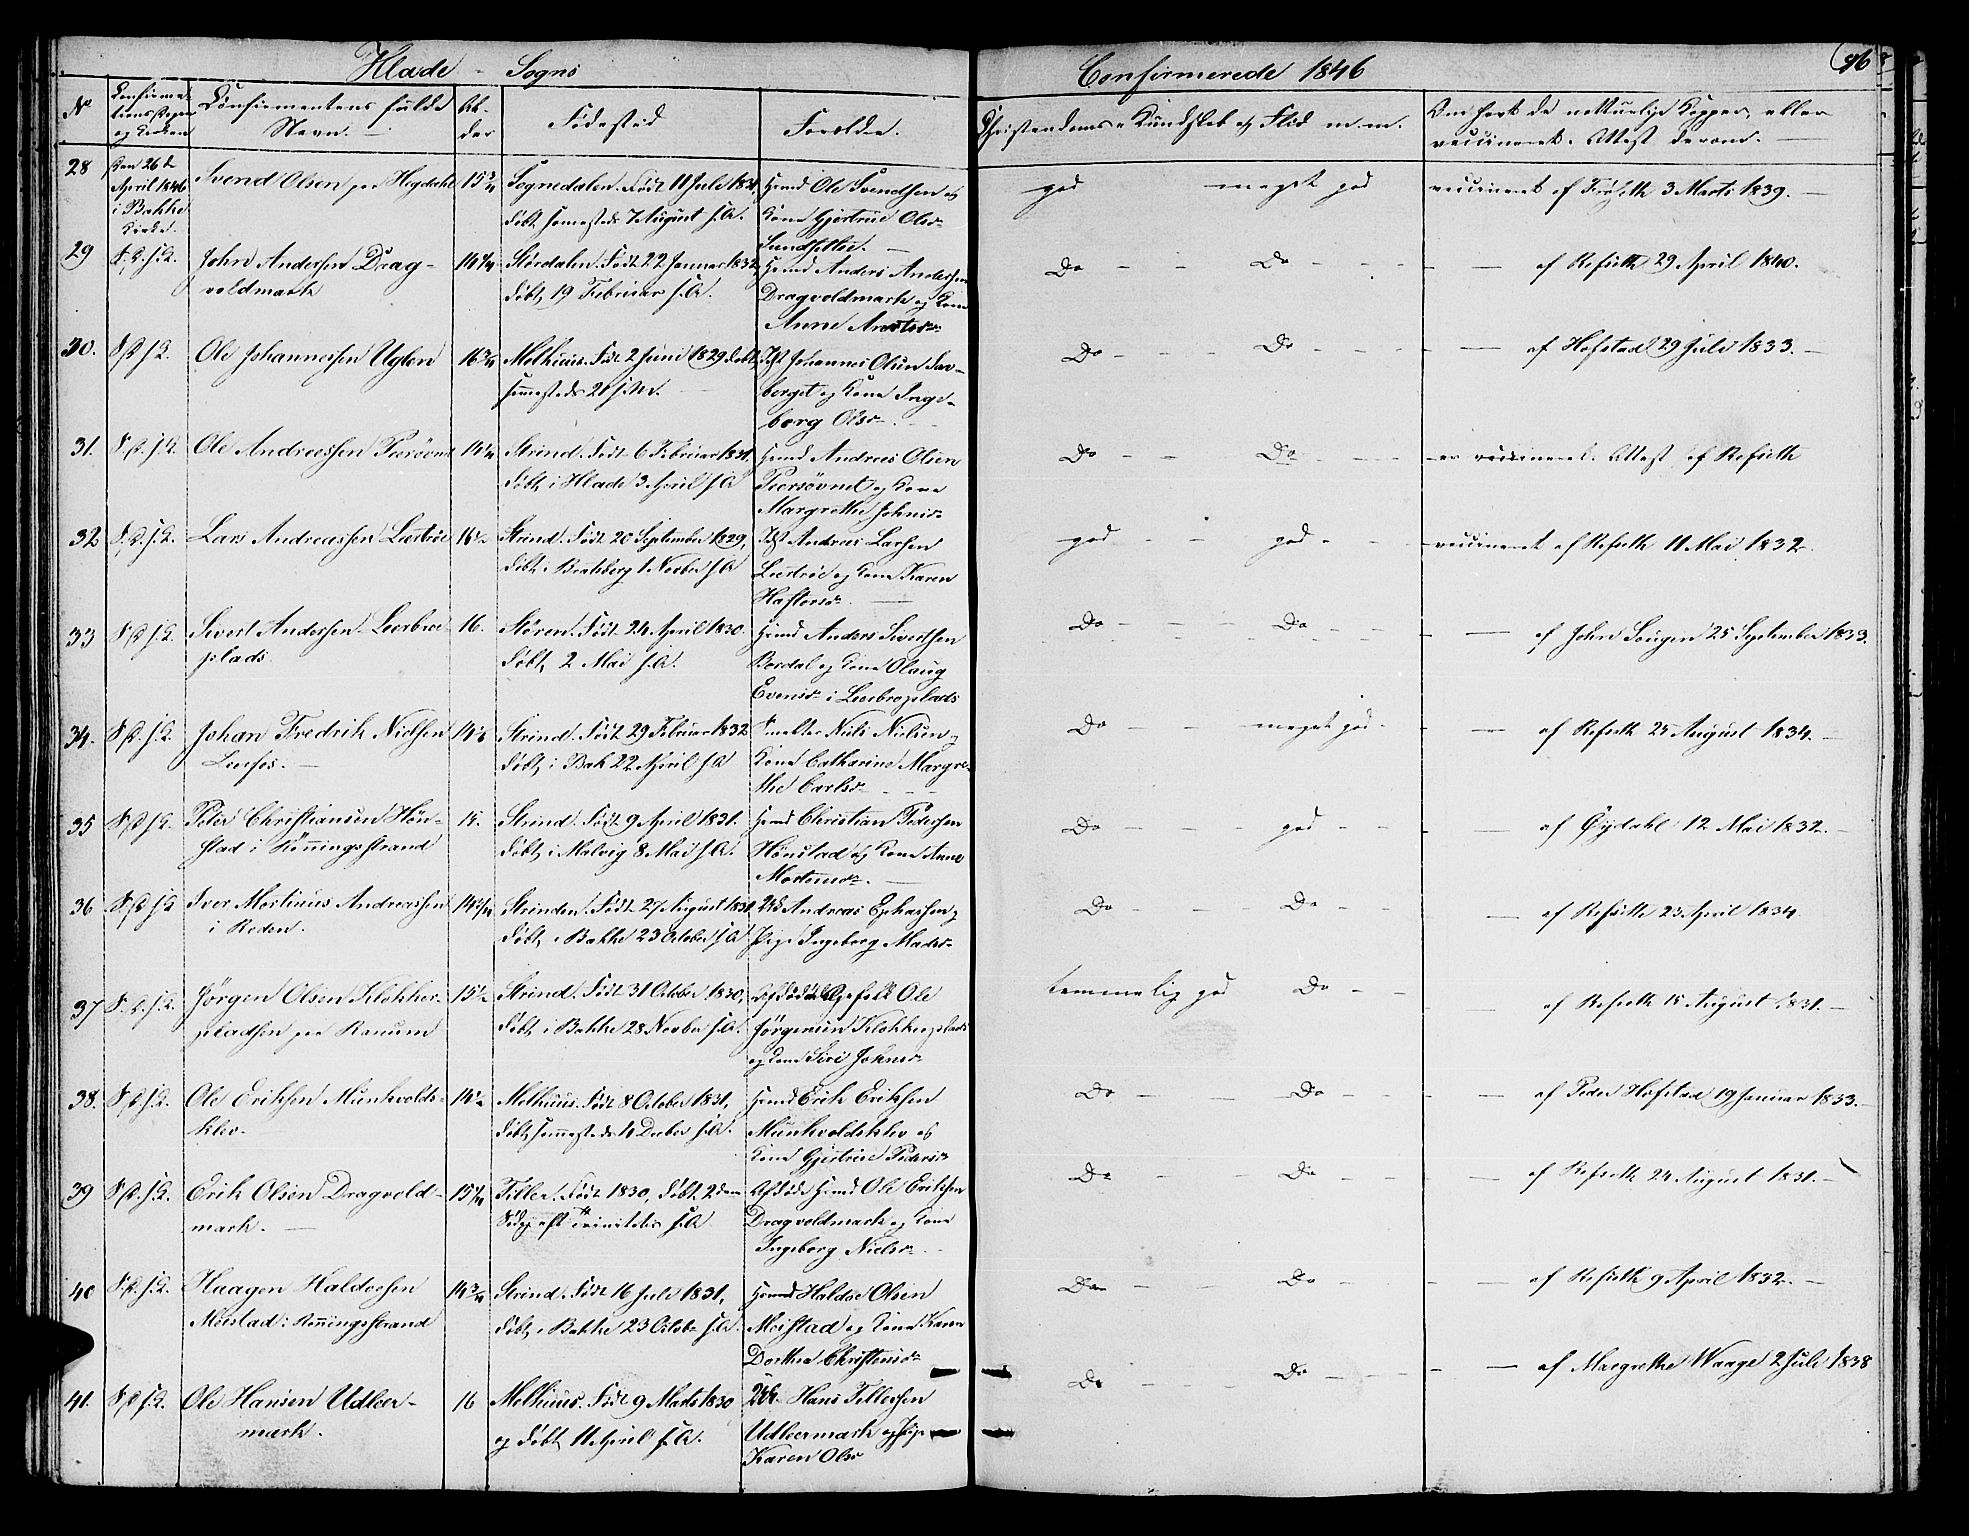 Hlade - Sogns
Confirmerede 1846
96
No
Confirma-
tions Dagen
og Kirken
Confirmantens fulde
Navn.
Al-
der
Fødested
Forældre.
Christendoms-Kundskab og Flid m.m.
Om havt de naturlige Kopper, eller
vaccineret. Attest derom.
28
Den 26de
April 1846
i Bakke
Kirke.
Svend Olsen paa Hegdahl
15 3/4
Sognedalen. Født 11 Juli 1830,
døbt sammesteds 7 August s.A.
Huusmd Ole Svendsen og
Kone Gjertrue Olsdr
god meget god
vaccineret af Refseth 3 Marts 1839.
29
S.D. s.K.
John Andersen Drag-
voldmark
14 1/4
Størdalen. Født 22 Januar 1832,
døbt 19 Februar s.A.
Huusmd Anders Andersen
Dragvoldmark og Kone
Anne
Do - - Do - - -
- af Refseth 29 April 1840.
30.
S.D. s.K.
Ole Johannessen Uglen
16 3/4
Melhuus. Født 2 Juni 1829 døbt
sammesteds 20 s.M.
Johannes Olsen
og Kone Inge-
borg Olsdr
Do - - Do - - -
af Hofstad 29 Juli 1833.
31.
S.D. s.K.
Ole Andreassen Peersøvnet
Strind. Født 6 Februar 1831,
døbt i Hlade 3 April s.A
Huusmd Andreas Olsen
Peersøvnet og Kone
Margrethe Johnsdr
Do - - Do - - -
er vaccineret. Attest af Refseth
32
S.D. s.K.
Lars Andreassen Leertrøe
16 1/2
Strind. Født 20 September 1829,
døbt i Bratsberg 1 Novbr s.A
Andreas Larsen
Leertrøe og Kone Karen
Haftorsdr
god - - god - -
vaccineret af Refseth 11 Mai 1832.
33
S.D. s.K.
Sivert Andersen Leerbroe-
plads.
16.
Støren. Født 24 April 1830.
døbt 2 Mai s.A.
Huusmd Anders Sivertsen
Bordal og Kone Olaug
Evensdr i Leerbroplads
Do - - Do - -
- af John Sougen 25 September 1833.
34.
S.D. s.K.
Johan Fredrik Nielsen
Leerfos.
14 1/6
Strind. Født 29 Februar 1832
døbt i Bak 22 April s.A
Smelter Niels Nielsen og
Kone Catharine Margre-
the Carlsdr
Do - - meget god -
- af Refseth 25 August 1834.
35
S.D. s.K.
Peter Christiansen Høn-
stad i Rønningsstrand
15.
Strind. Født 9 April 1831.
døbt i Malvig 8 Mai s.A.
Huusmd Christian Pedersen
Hønstad og Kone Anne
Mortensdr.
Do - - - god - -
- af Øydahl 12 Mai 1832.
36
S.D. s.K.
Iver Martinus Andreassen
i Reden.
14
Strinden. Født 27 August 1831
døbt i Bakke 23 October s.A
Andreas Ephassen og
Pige Ingeborg Madsdr
Do - - - Do - -
- af Refseth 23 April 1834.
37
S.D. s.K.
Jørgen Olsen Klokker-
pladsen paa Ranum
15 1/2
Strind. Født 31 October 1830,
døbt i Bakke 28 Novbr s.A.
Ole
Jørgensen Klokkerplads
og Kone Siri Johnsdr
temmelig god Do - -
af Refseth 15 August 1831.
38.
S.D. s.K.
Ole Eriksen Munkvolds-
klev.
14 1/2
Melhuus. Født 8 October 1831,
døbt sammesteds 4 Decbr s.A.
Huusmd Erik Eriksen
Munkvoldsklev og
Kone Gjertrue Pedersdr
Do - - - Do - -
af Peder Hofstad 19 Januar 1833.
39
S.D. s.K.
Erik Olsen Dragvold-
mark.
15 3/4
Tiller. Født 1830, døbt 2den
Søndag eft Trinitatis s.A
Afdøde Huusmd Ole Eriksen
Dragvoldmark og Kone
Ingeborg Nielsdr
Do - - - Do - -
af Refseth 24 August 1831.
40
S.D. s.K.
Haagen Haldosen
Moistad i Rønningsstrand
14 3/4
Strind. Født 16 Juli 1831,
døbt i Bakke 23 Octobr s.A.
Huusmd Haldo Olsen
Moistad og Kone Karen
Dorthea Christensdr
Do - - Do - -
af Refseth 9 April 1832.
41.
S.D. s.K.
Ole Hansen Udleer-
mark.
16
Melhuus. Født 9 Marts 1830
og døbt 11 April s.A.
Hans Tillersen
Udleermark og Pige
Karen Olsdr
Do - - - Do - -
- af Margrethe Waage 2 Juli 1838